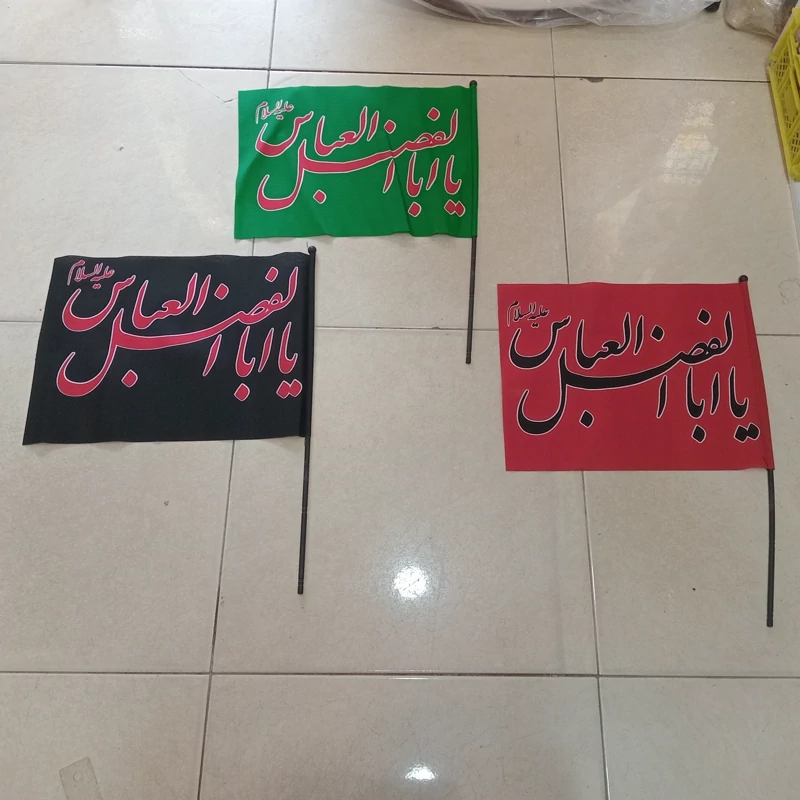 یا ابا الفضل العباس علیه السلام
یا ابا الفضل العباس علیه السلام
یا ابا الفضل العباس علیه السلام